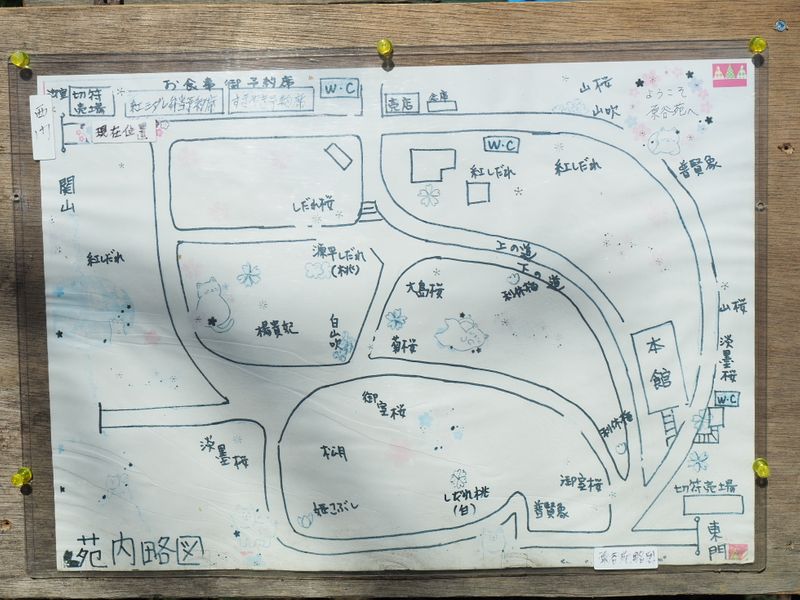 お食事御予約席
W·C
切符
売場
紅シダレ弁当予約席
すきやき予約席
西門
現在位置
売店
山桜
山吹
ようこそ
原谷苑へ
W·C
普賢象
関山
紅しだれ
紅しだれ
紅しだれ
しだれ桜
源平しだれ
(桃)
上の道
上の道
大島桜
利休梅
楊貴妃
白山吹
菊桜
山桜
淡墨桜
本館
W·C
御室桜
利休梅
淡墨桜
松月
姫こぶし
しだれ桃
(白)
御室桜
普賢象
切符売場
東門
苑内略図